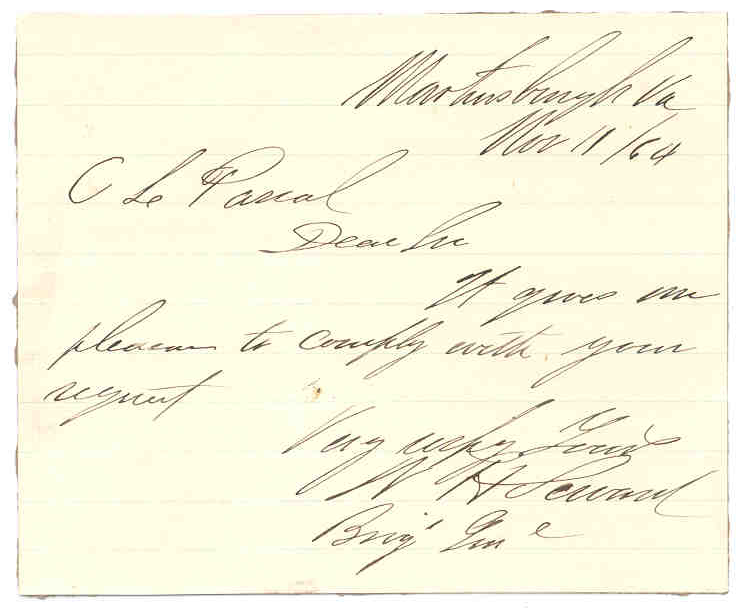 Martinsburgh Va
Nov 11/64
C Le Pascal
Dear Sir
It gives me
pleasure to comply with your
request
Very respy Yours
W H Seward
Brig Genl